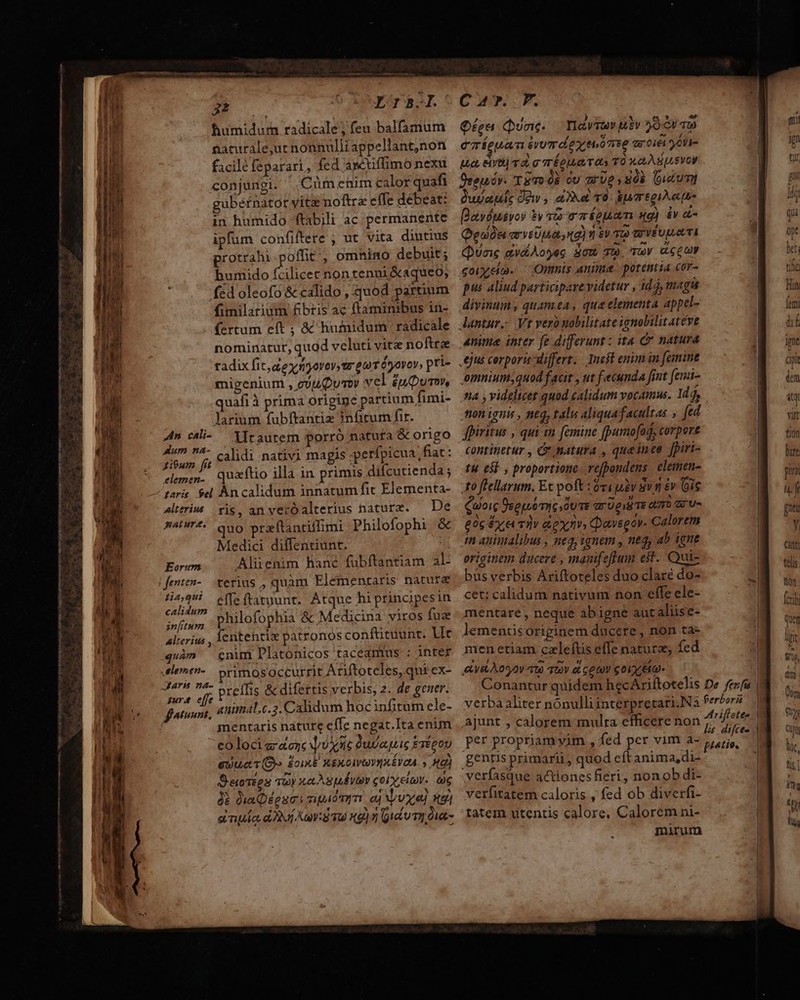 32 LIB. I.
humidum radicale, seu balsamum
naturale, ut nonnulli appellant, non
facilè separari, sed arctissimo nexu
conjungi. Cùm enim calor quasi
gubernator vitæ nostræ esse debeat:
in humido stabili ac permanente
ipsum consistere, ut vita diutius
protrahi possit, omnino debuit;
humido scilicet non tenui & aqueo,
sed oleoso & calido, quod partium
similarium fibris ac staminibus in-
sertum est; & humidum radicale
nominatur, quod veluti vitæ nostræ
radix sit, ἀρχηγονον, πρωτόγονον, pri-
migenium, σύμφυτον vel ἔμφυτον,
quasi à prima origine partium simi-
larium substantiæ insitum sit.
An cali-
dum na-
tivum sit
elemen-
taris vel
alterius
naturæ.
Ut autem porrò natura & origo
calidi nativi magis perspicua fiat:
quæstio illa in primis discutienda;
An calidum innatum sit Elementa-
ris, an verò alterius naturæ. De
quo præstantissimi Philosophi &
Medici dissentiunt.
Eorum
senten-
tia, qui
calidum
insitum
alterius,
quàm
elemen-
taris na-
turæ esse
statuunt,
Alii enim hanc substantiam al-
terius, quàm Elementaris naturæ
esse statuunt. Atque hi principes in
philosophia & Medicina viros suæ
sententiæ patronos constituunt. Ut
enim Platonicos taceamus: inter
primos occurrit Aristoteles, qui ex-
pressis & disertis verbis, 2. de gener.
animal. c. 3. Calidum hoc insitum ele-
mentaris nature esse negat. Ita enim
eo loci πάσης ψυχῆς δύναμις ἑτέρου
σώματος ἔοικε κεκοινωνηκέναι, καὶ
θειοτέρου τῶν καλουμένων στοιχείων. ὡς
δὲ διαφέρουσι τιμιότητι αἱ ψυχαὶ καὶ
ἀτιμία ἀλλήλων: οὕτω καὶ ἡ τοιαύτη δια-
CAP. V.
φέρει φύσις. Πάντων μὲν γὸ ἐν τῶ
σπέρματι ἐνυπάρχει, ὅπερ ποιεῖ γόνι-
μα εἶναι τὰ σπέρματα, τὸ καλούμενον
θερμόν. Τοῦτο δὲ οὐ πῦρ, οὐδὲ τοιαύτη
δύναμίς ἐστιν, ἀλλὰ τὸ ἐμπεριλαμ-
βανόμενον ἐν τῶ σπέρματι καὶ ἐν ἀ-
φρώδει πνεῦμα, καὶ ἡ ἐν τῶ πνεύματι
φύσις ἀνάλογος οὖσα τῶ, τῶν ἄστρων
στοιχείω. Omnis animæ potentia cor-
pus aliud participare videtur, idq́, magis
divinum, quam ea, quæ elementa appel-
lantur. Vt verò nobilitate ignobilitateve
animæ inter se differunt: ita & natura
ejus corporis differt. Inest enim in semine
omnium, quod facit, ut fæcunda sint semi-
na, videlicet quod calidum vocamus. Idq́,
non ignis, neq, talis aliqua facultas, sed
spiritus, qui in semine spumosoq́, corpore
continetur, & natura, quæ in eo spiri-
tu est, proportione respondens elemen-
to stellarum. Et post: ὅτι μὲν οὖν ἡ ἐν τοῖς
ζώοις θερμότης, οὔτε πῦρ οὔτε ἀπὸ πυ-
ρὸς ἔχει τὴν ἀρχὴν, φανερόν. Calorem
in animalibus, neq, ignem, neq, ab igne
originem ducere, manifestum est. Qui-
bus verbis Aristoteles duo clarè do-
cet: calidum nativum non esse ele-
mentare, neque ab igne aut aliis e-
lementis originem ducere, non ta-
men etiam cælestis esse naturæ, sed
ἀνάλογον τῶ τῶν ἄστρων στοιχείω.
Conantur quidem hęc Aristotelis
verba aliter nónulli interpretari. Nā
ajunt, calorem multa efficere non
per propriam vim, sed per vim a-
gentis primarii, quod est anima, di-
versasque actiones fieri, non ob di-
versitatem caloris, sed ob diversi-
tatem utentis calore. Calorem ni-
mirum
De sensu
verborū
Aristote-
lis discε-
ptatio.